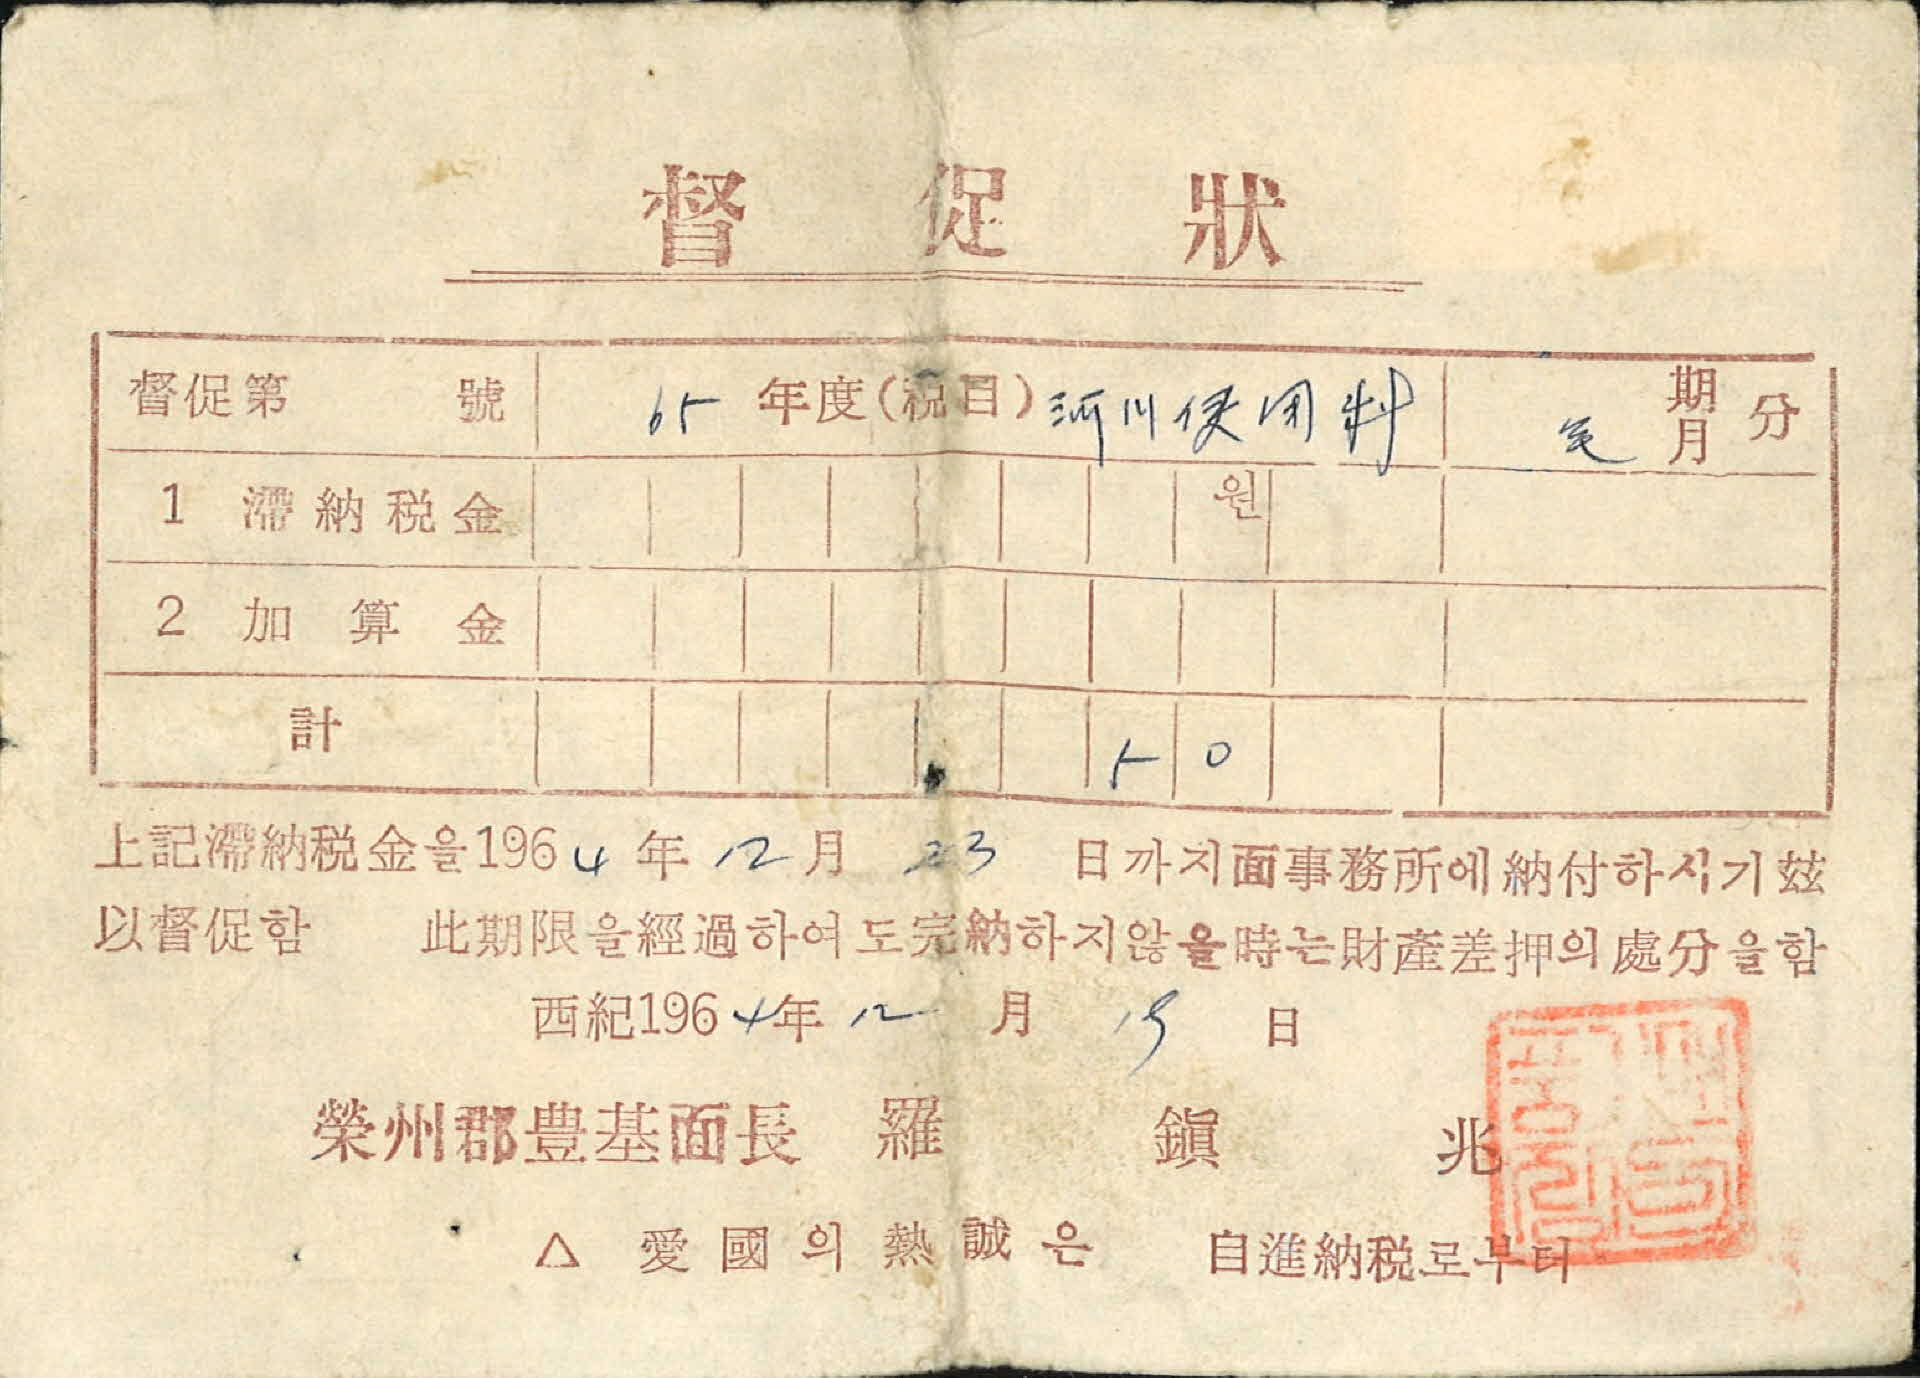 督促狀
督促第 號 65 年度(税目) 河川使用料 期月分
1 滯納税金 원
2 加算金
計 50
上記滯納税金을1964年12月23日까지面事務所에納付하시기玆
以督促함 此期限을經過하여도完納하지않을時는財產差押의處分을함
西紀1964年12月15日
榮州郡豊基面長 羅鎭兆
△ 愛國의熱誠은 自進納税로부터